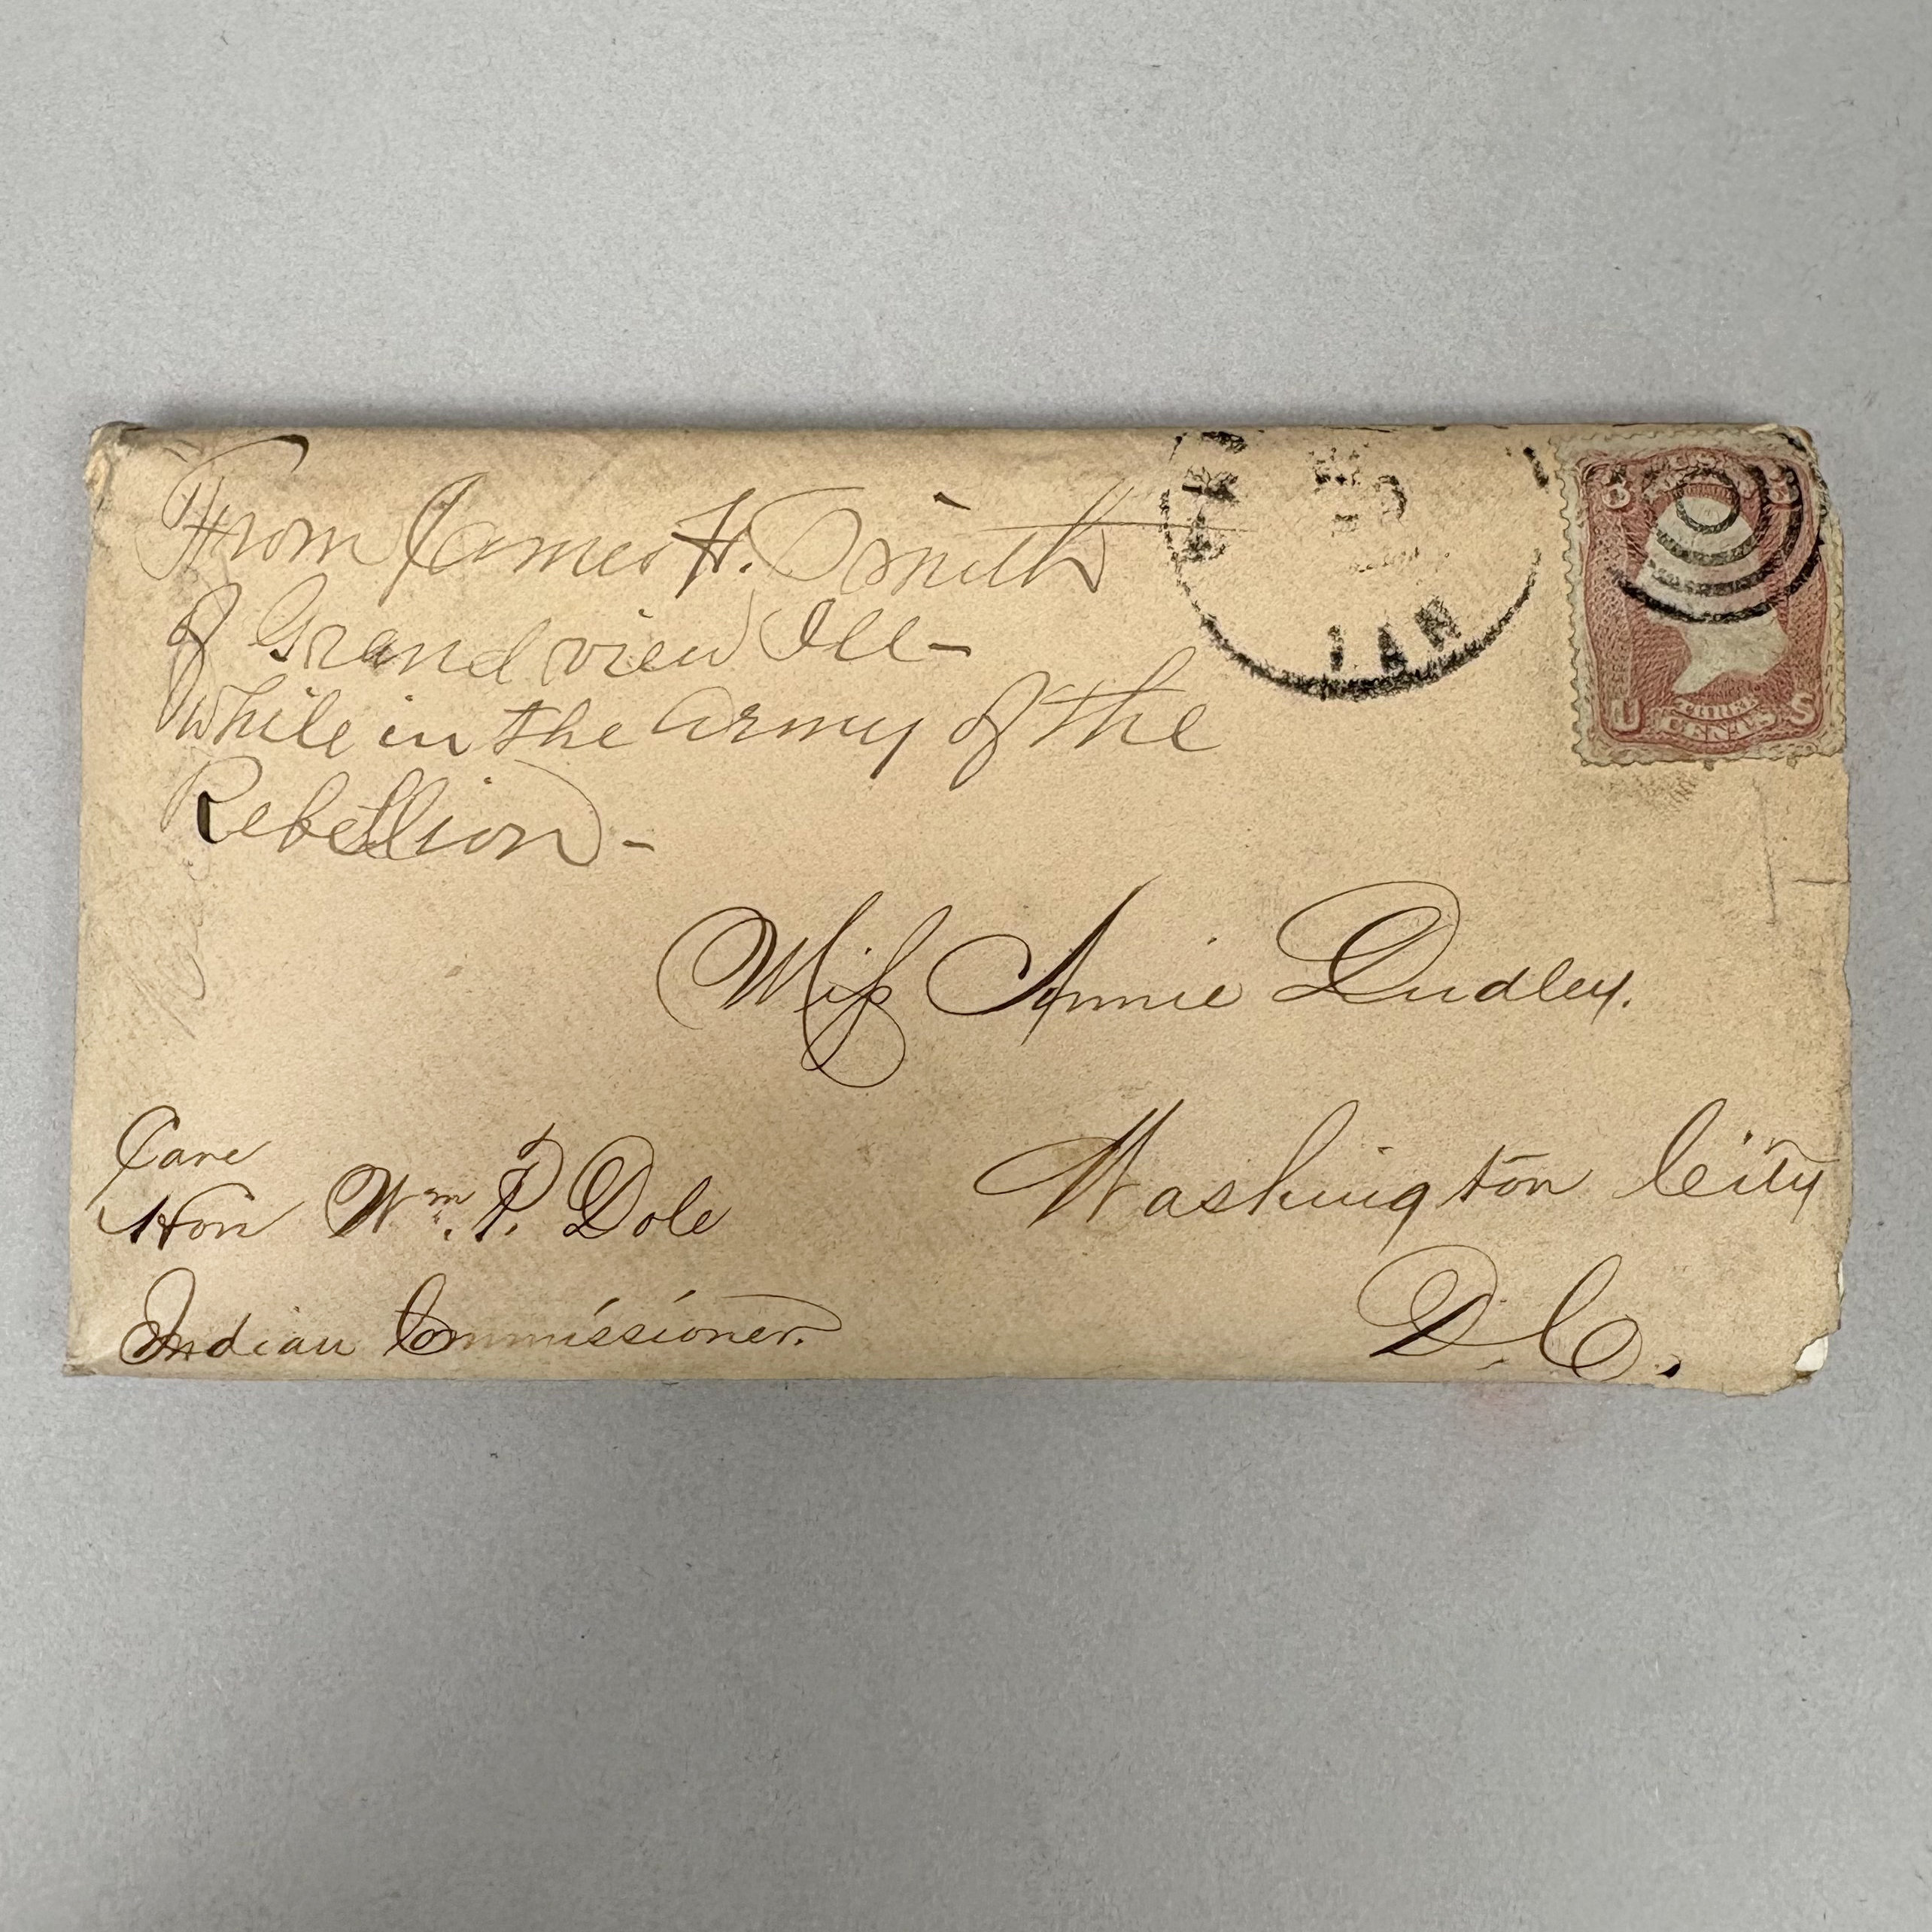 From James H. Smith
of Grand view Ill-
while in the army of the
Rebellion-
Miss Annie Dudley.
Care
Hon Wm. P. Dole
Indian Commissioner.
Washington City
D.C.
3
U THREE S
CENTS